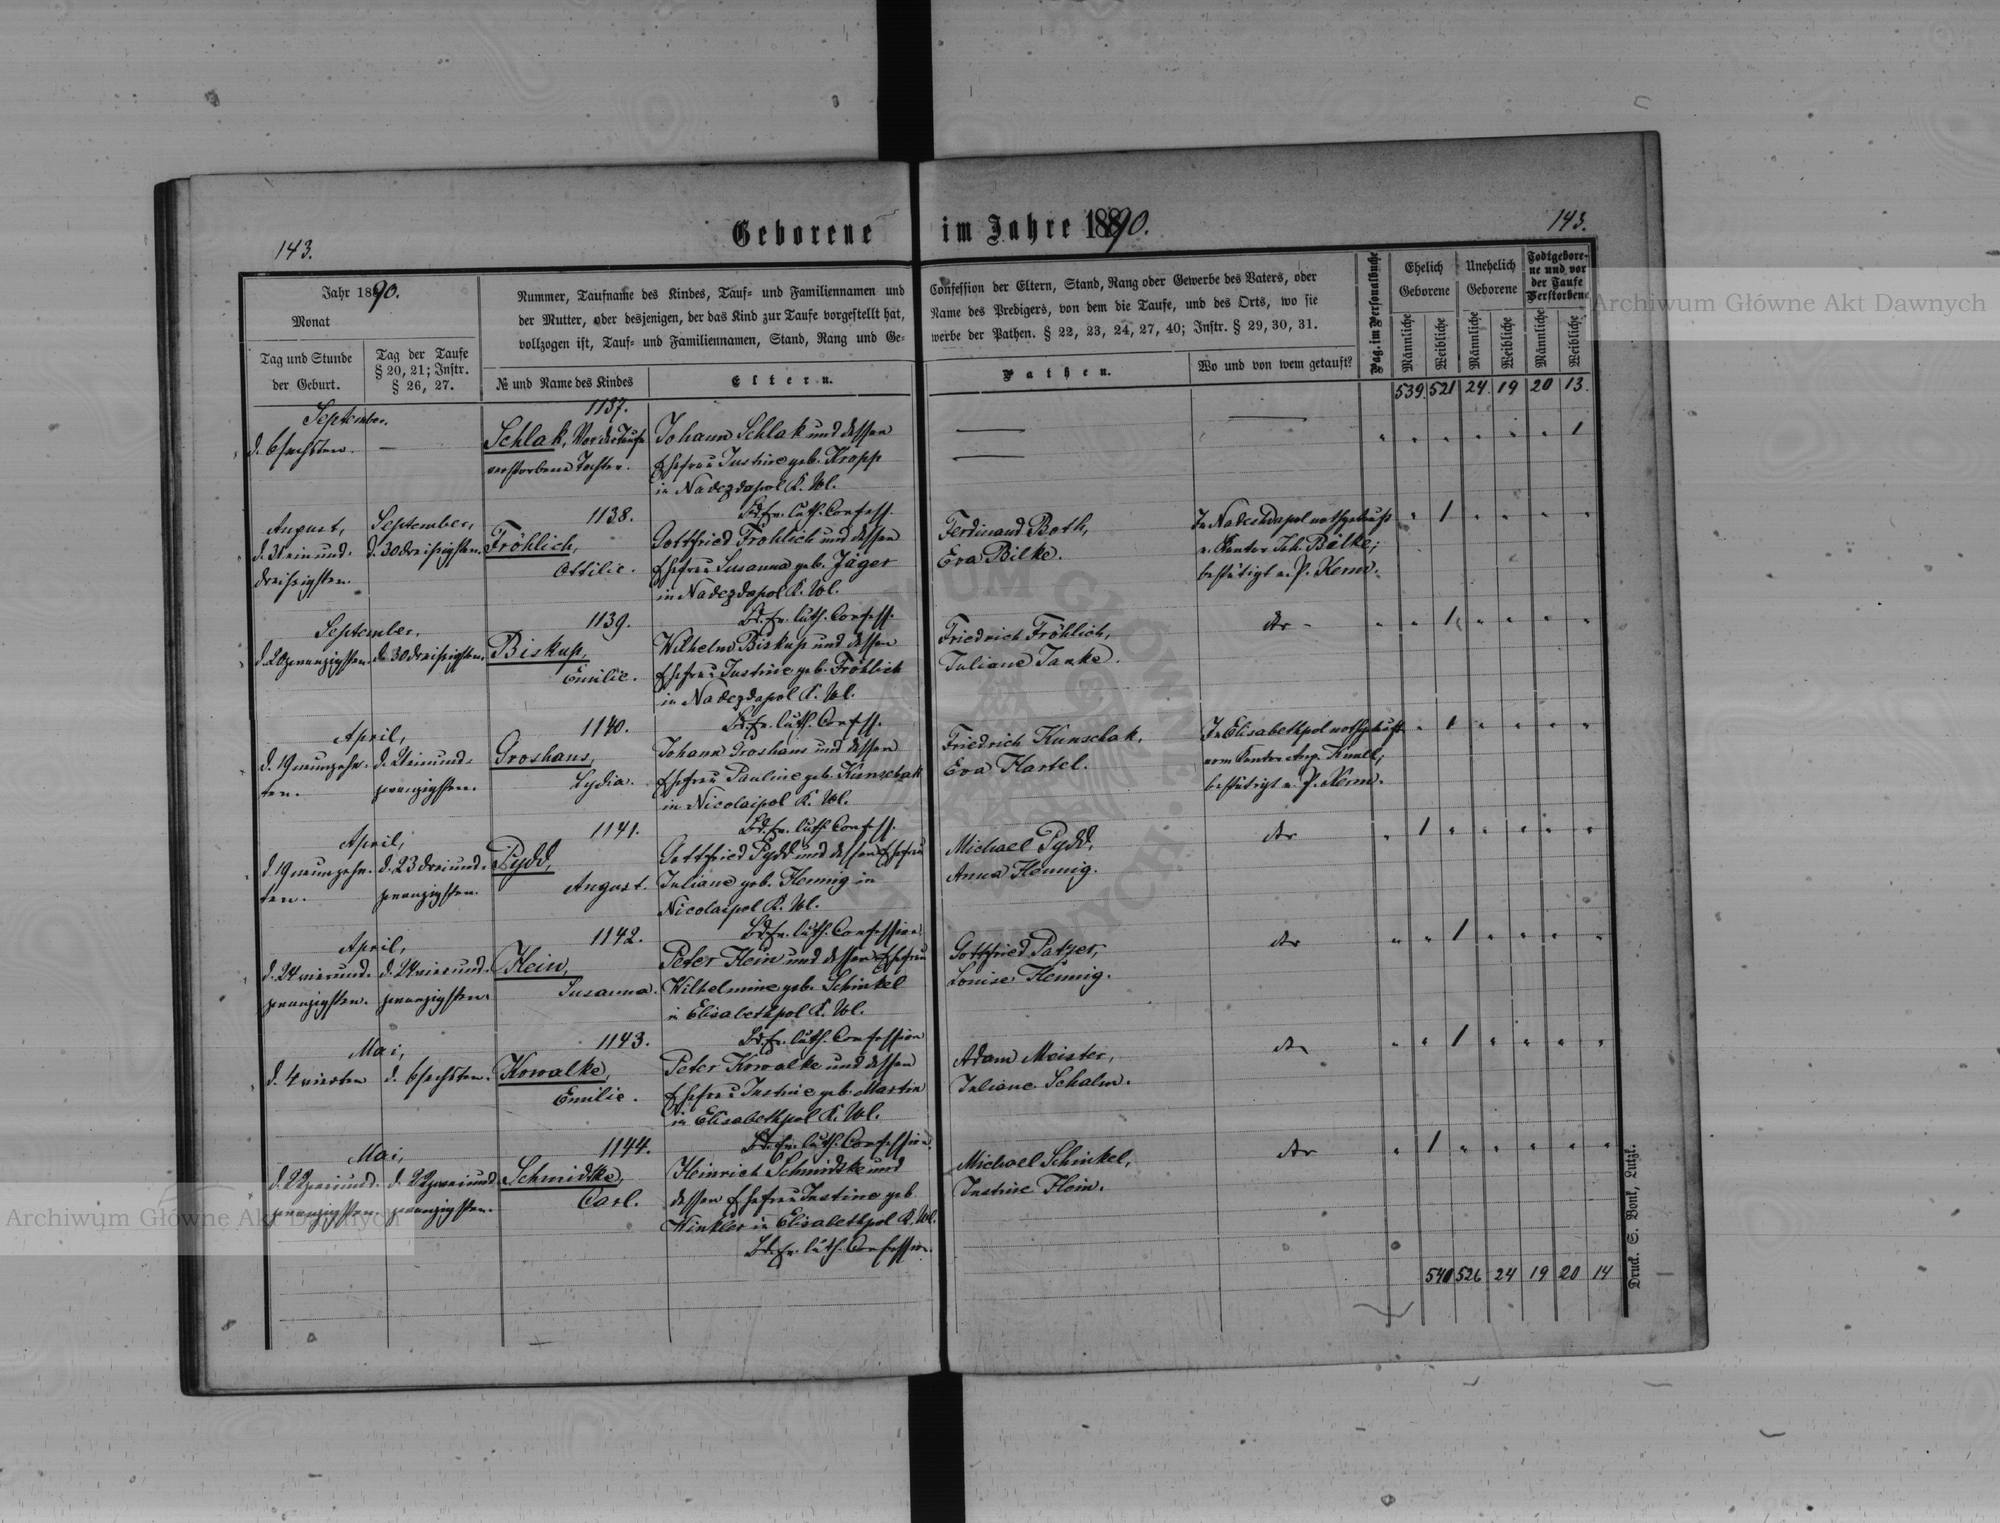 143.
Geborene im Jahre 1890.
143.
Jahr 1890.
Monat
Tag und Stunde
der Geburt.
Tag der Taufe
§ 20, 21; Instr.
§ 26, 27.
Nummer, Taufname des Kindes, Tauf- und Familiennamen und
der Mutter, oder desjenigen, der das Kind zur Taufe vorgestellt hat,
vollzogen ist, Tauf- und Familiennamen, Stand, Rang und Ge-
№ und Name des Kindes
Eltern.
Confession der Eltern, Stand, Rang oder Gewerbe des Vaters, oder
Name des Predigers, von dem die Taufe, und des Orts, wo sie
werbe der Pathen. § 22, 23, 24, 27, 40; Instr. § 29, 30, 31.
Pathen.
Wo und von wem getauft?
Pag. im Personalbuche
Ehelich
Geborene
Unehelich
Geborene
Todtgebore-
ne und vor
der Taufe
Verstorbene
Männliche
Weibliche
Männliche
Weibliche
Männliche
Weibliche
539. 521 24. 19 20 13.
September.
d. 6 sechsten. —
1137.
Schlak, Vor der Taufe
verstorbene Tochter.
Johann Schlak und dessen
Ehefrau Justine geb. Kropp
in Nadezdapol K. Wl.
luth. Confess.
1
August,
d. 31 ein und-
dreißigsten.
September,
d. 30 dreißigsten.
1138.
Fröhlich,
Ottilie.
Gottfried Fröhlich und dessen
Ehefrau Susanna geb. Jäger
in Nadezdapol K. Wl.
luth. Confess.
Ferdinand Both,
Eva Bilke.
In Nadeshdapol nothgetauft
v. Kantor Joh. Bilke;
bestätigt v. P. Kerm.
1
September,
d. 20 zwanzigsten. d. 30 dreißigsten.
1139.
Biskup,
Emilie.
Wilhelm Biskup und dessen
Ehefrau Justine geb. Fröhlich
in Nadezdapol K. Wl.
luth. Confess.
Friedrich Fröhlich,
Juliane Janke.
1
April,
d. 19 neunzehn-
ten.
d. 21 einund-
zwanzigsten.
1140.
Groshans,
Lydia.
Johann Groshans und dessen
Ehefrau Pauline geb. Kunschak
in Nicolaipol K. Wl.
luth. Confess.
Friedrich Kunschak,
Eva Hartel.
In Elisabethpol nothgetauft
vom Kantor Aug. Knell;
bestätigt v. P. Kerm.
1
April,
d. 19 neunzehn-
ten.
d. 23 dreiund-
zwanzigsten.
1141.
Pydd,
August.
Gottfried Pydd und dessen Ehefrau
Juliane geb. Hennig in
Nicolaipol K. Wl.
luth. Confession.
Michael Pydd,
Anna Hennig.
1
April,
d. 24 vierund-
zwanzigsten.
d. 24 vierund-
zwanzigsten.
1142.
Hein,
Susanna.
Peter Hein und dessen Ehefrau
Wilhelmine geb. Schinkel
in Elisabethpol K. Wl.
luth. Confession
Gottfried Patzer,
Louise Hennig.
1
Mai,
d. 4 vierten d. 6 sechsten.
1143.
Kowalke,
Emilie.
Peter Kowalke und dessen
Ehefrau Justine geb. Martin
in Elisabethpol K. Wl.
luth. Confession.
Adam Meister,
Juliane Schalm.
1
Mai,
d. 22 zweiund-
zwanzigsten.
d. 22 zweiund-
zwanzigsten.
1144.
Schmidtke,
Carl.
Heinrich Schmidtke und
dessen Ehefrau Justine geb.
Winkler in Elisabethpol K. Wl.
luth. Confession.
Michael Schinkel,
Justine Hein.
1
540 526 24 19 20 14
Druck. S. Bonk, Lutzk.
Archiwum Główne Akt Dawnych
Archiwum Główne Akt Dawnych